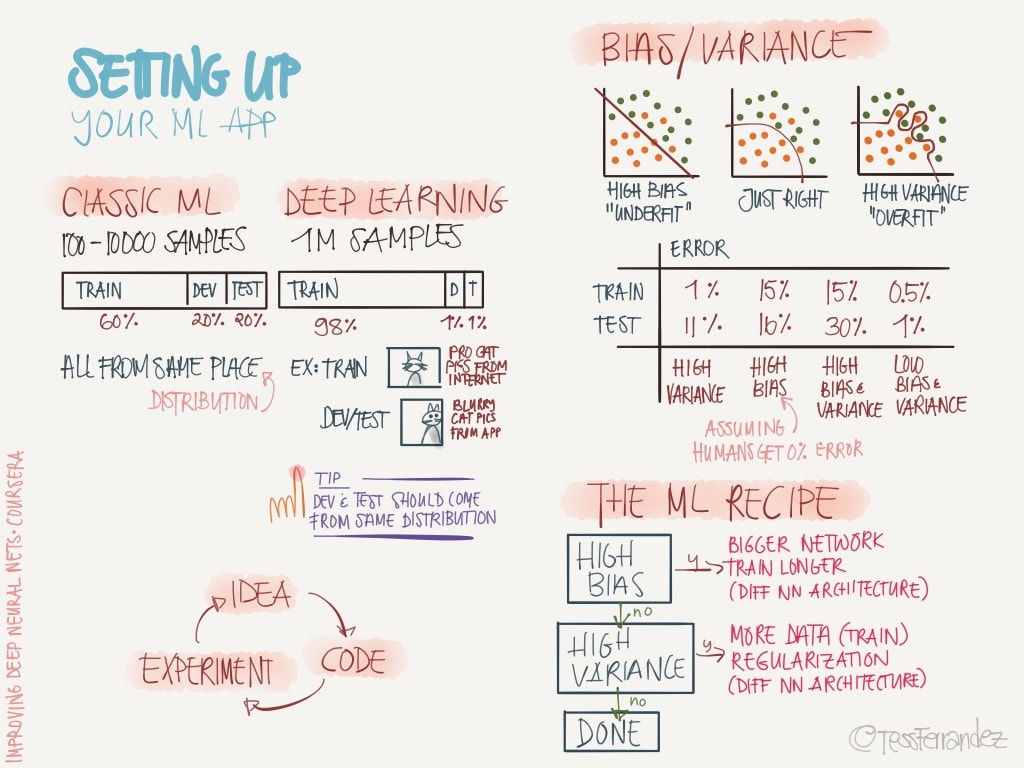 SETTING UP
YOUR ML APP
CLASSIC ML
100-10000 SAMPLES
TRAIN DEV TEST
60% 20% 20%
ALL FROM SAME PLACE
DISTRIBUTION
DEEP LEARNING
1M SAMPLES
TRAIN D T
98% 1% 1%
EX: TRAIN
PRO CAT
PICS FROM
INTERNET
DEV/TEST
BLURRY
CAT PICS
FROM APP
TIP
DEV & TEST SHOULD COME
FROM SAME DISTRIBUTION
IDEA
CODE
EXPERIMENT
IMPROVING DEEP NEURAL NETS • COURSERA
BIAS/VARIANCE
HIGH BIAS
"UNDERFIT"
JUST RIGHT
HIGH VARIANCE
"OVERFIT"
ERROR
TRAIN 1% 15% 15% 0.5%
TEST 11% 16% 30% 1%
HIGH
VARIANCE
HIGH
BIAS
HIGH
BIAS &
VARIANCE
LOW
BIAS &
VARIANCE
ASSUMING
HUMANS GET 0% ERROR
THE ML RECIPE
HIGH
BIAS
y
BIGGER NETWORK
TRAIN LONGER
(DIFF NN ARCHITECTURE)
no
HIGH
VARIANCE
y
MORE DATA (TRAIN)
REGULARIZATION
(DIFF NN ARCHITECTURE)
no
DONE
©TessFerrandez